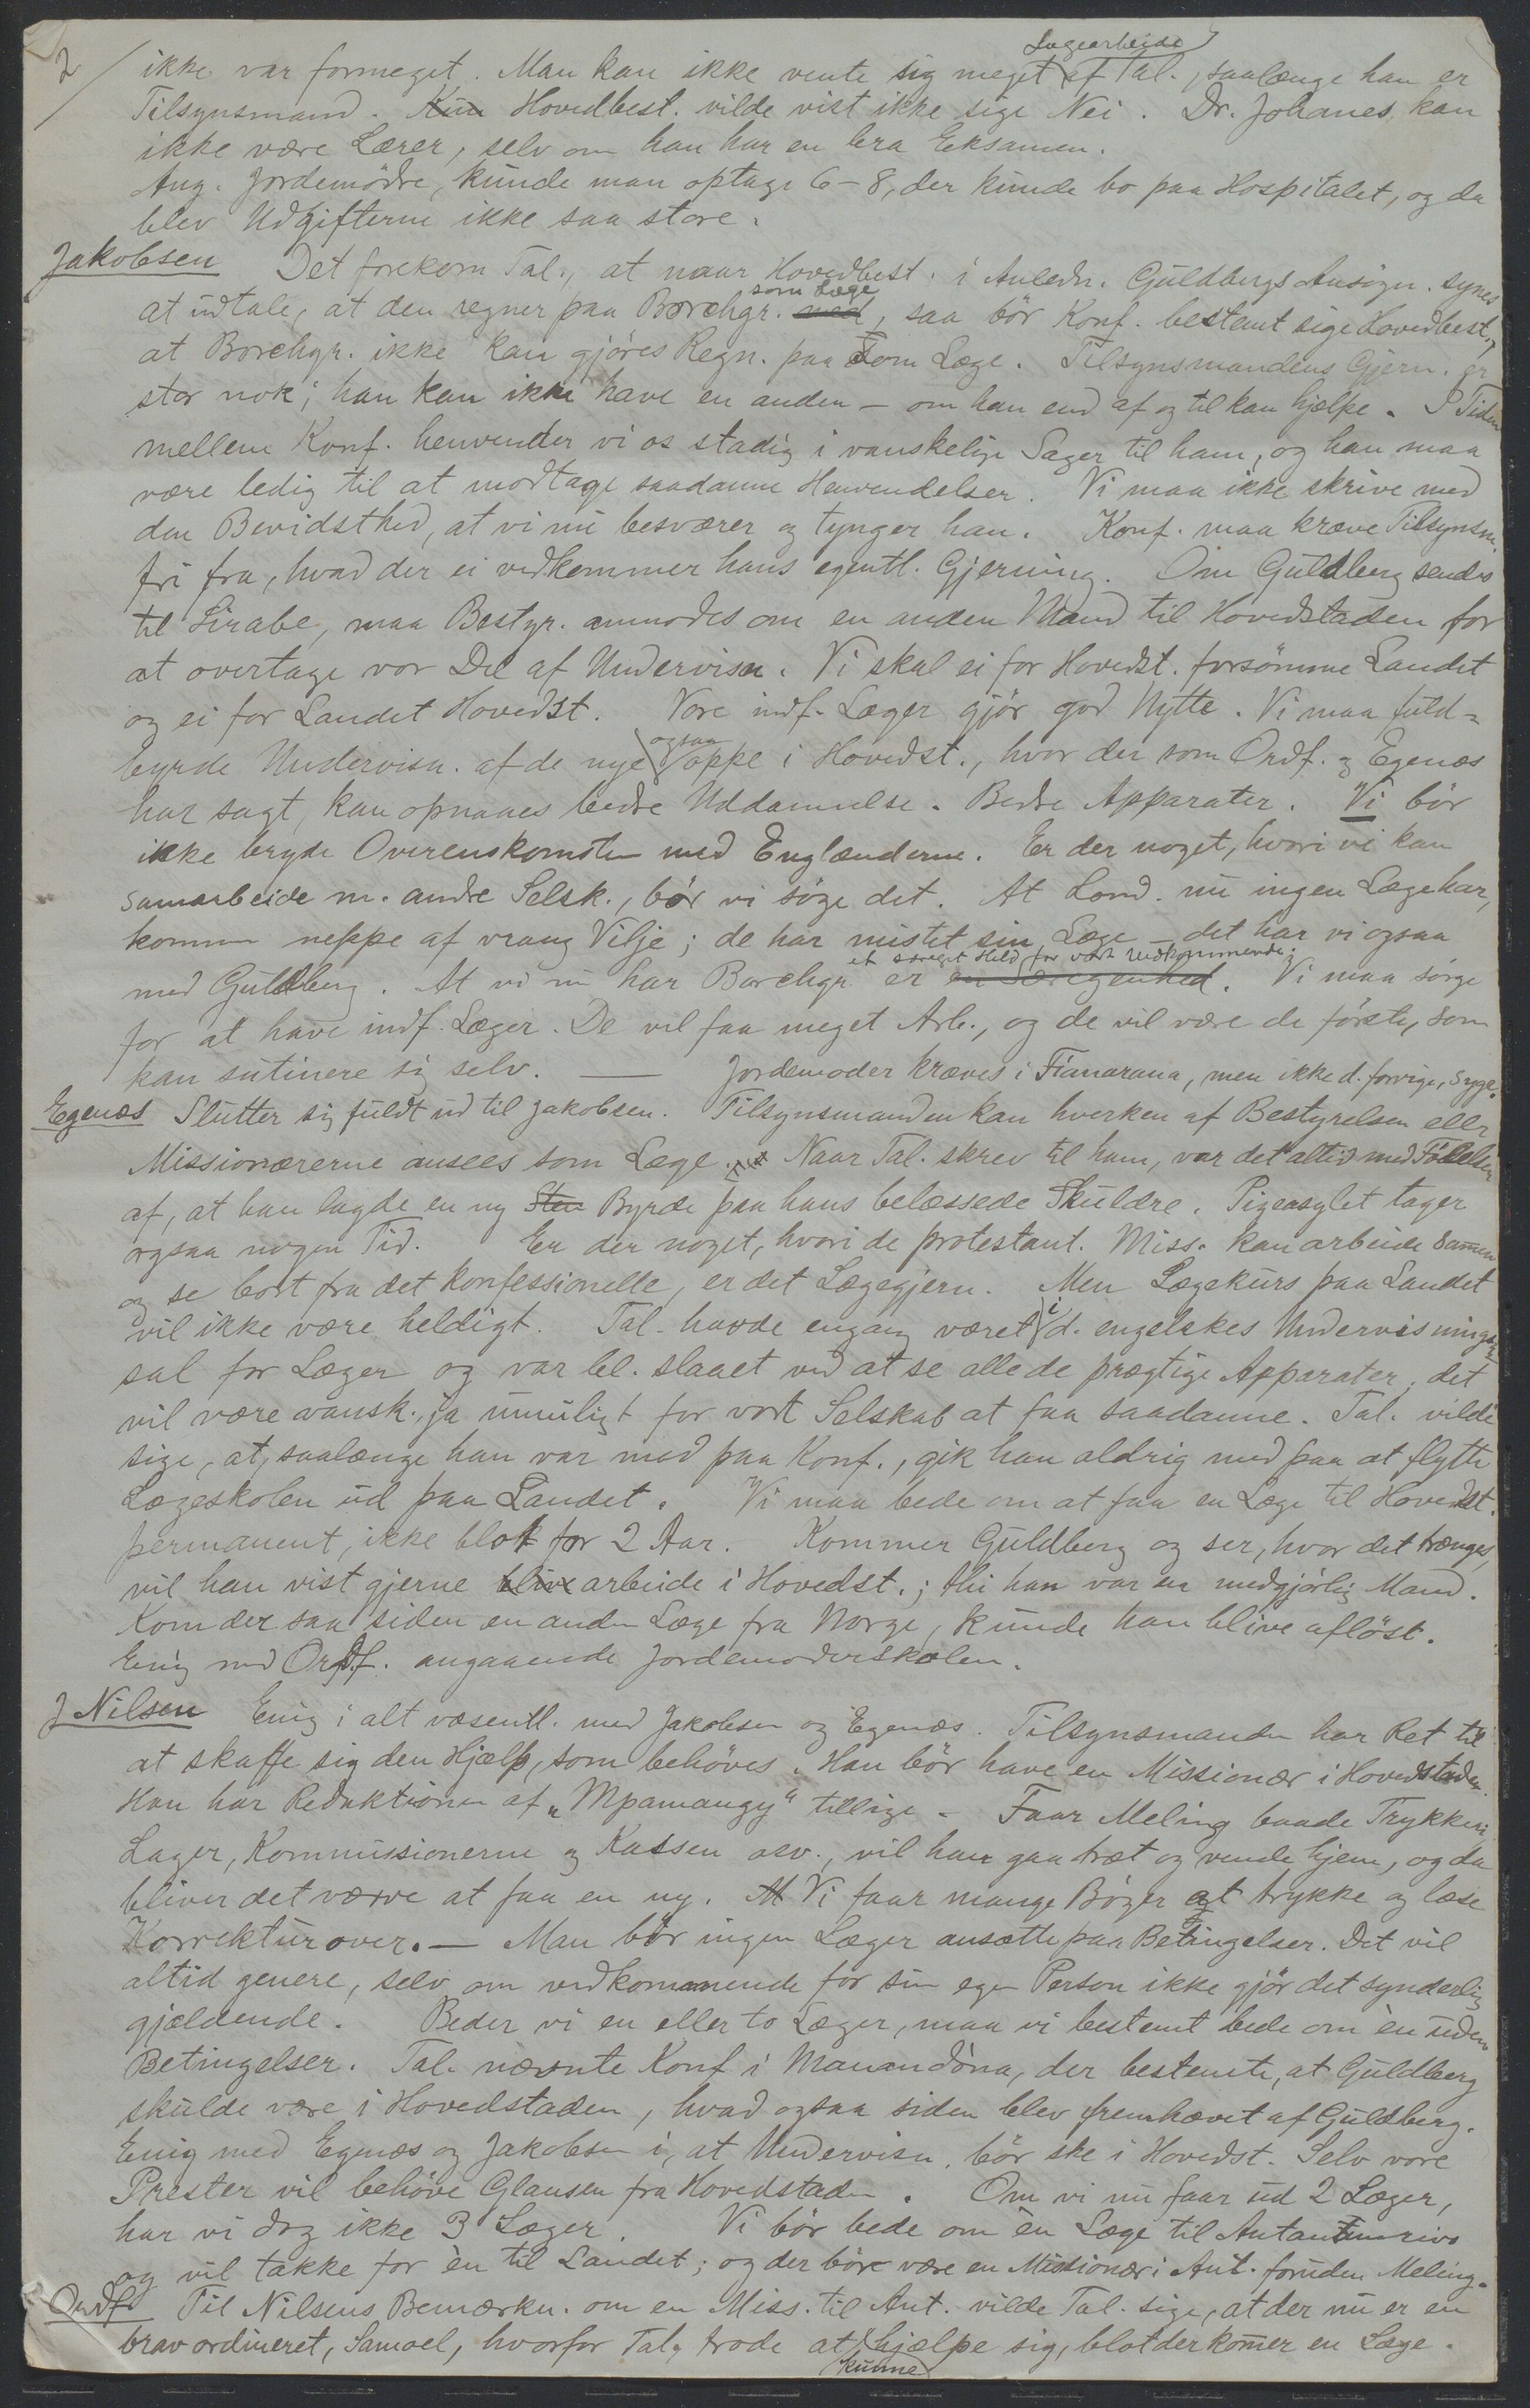 2/ ikke var formeget. Man kan ikke vente sig meget Lægearbeide af Tal., saalænge han er
Tilsynsmand. Kun Hovedbest. vilde vist ikke sige Nei. Dr. Johanes kan
ikke være Lærer, selv om han har en bra Eksamen.
Ang. Jordemødre, kunde man optage 6-8, der kunde bo paa Hospitalet, og da
blev Udgifterne ikke saa store.
Jakobsen Det forekom Tal., at naar Hovedbest. i Anledn. Guldbergs Ansøgn. synes
at udtale, at den regner paa Borchgr. med som Læge, saa bör Konf. bestemt sige Hovedbest.,
at Borchgr. ikke kan gjöres Regn. paa som Læge. Tilsynsmandens Gjern. er
stor nok; han kan ikke have en anden - om han end af og til kan hjælpe. I Tiden
mellem Konf. henvender vi os stadig i vanskelige Sager til ham, og han maa
være ledig til at modtage saadanne Henvendelser. Vi maa ikke skrive med
den Bevidsthed, at vi nu besværer og tynger han. Konf. maa kræve Tilsynsm.
fri fra, hvad der ei vedkommer hans egentl. Gjerning. Om Guldberg sendes
til Sirabe, maa Bestyr. anmodes om en anden Mand til Hovedstaden for
at overtage vor Del af Undervisn. Vi skal ei for Hovedst. forsömme Landet
og ei for Landet Hovedst. Vore indf. Læger gjör god Nytte. Vi maa fuld-
byrde Undervisn. af de nye ogsaa oppe i Hovedst., hvor der som Ordf. og Egenæs
har sagt, kan opnaaes bedre Uddannelse. Bedre Apparater. Vi bör
ikke bryde Overenskomsten med Englænderne. Er der noget, hvori vi kan
samarbeide m. andre Selsk., bör vi söge det. At Lond. nu ingen Læge har,
kommer neppe af vrang Vilje; de har mistet sin Læge - det har vi ogsaa
med Guldberg. At vi nu har Borchgr. er en Særegenhed et særeget Held for vort Vedkommende. Vi maa sörge
for at have indf. Læger. De vil faa meget Arb., og de vil være de förste, som
kan sutinere sig selv. — Jordemoder kræves i Fianarana, men ikke d. forrige, Syge.
Egenæs Slutter sig fuldt ud til Jakobsen. Tilsynsmanden kan hverken af Bestyrelsen eller
Missionærerne ansees som Læge. Naar Tal. skrev til ham, var det altid med Fölelsen
af, at han lagde en ny Sten Byrde paa hans belæssede Skuldre. Pigeasylet tager
ogsaa nogen Tid. Er der noget, hvori de protestant. Miss. kan arbeide sammen
og se bort fra det konfessionelle, er det Lægegjern. Men Lægekurs paa Landet
vil ikke være heldigt. Tal. havde engang været i d. engelskes Undervisnings-
sal for Læger og var bl. slaaet ved at se alle de prægtige Apparater, det
vil være vansk., ja umuligt for vort Selskab at faa saadanne. Tal. vilde
sige, at, saalænge han var med paa Konf., gik han aldrig med paa at flytte
Lægeskolen ud paa Landet. Vi maa bede om at faa en Læge til Hovedst.
permanent, ikke blot for 2 Aar. Kommer Guldberg og ser, hvor det trænges,
vil han vist gjerne blive arbeide i Hovedst.; thi han var en medgjörlig Mand.
Kom der saa siden en anden Læge fra Norge, kunde han blive aflöst.
Enig med Ordf. angaaende Jordemoderskolen.
J Nilsen Enig i alt væsentl. med Jakobsen og Egenæs. Tilsynsmanden har Ret til
at skaffe sig den Hjælp, som behöves. Han bör have en Missionær i Hovedstaden.
Han har Redaktionen af „Mpamangy“ tillige - Faar Meling baade Trykkeri
Lager, Kommissionerne og Kassen osv., vil han gaa træt og vende hjem, og da
bliver det værre at faa en ny. At Vi faar mange Böger at trykke og læse
Korrektur over. — Man bör ingen Læger ansætte paa Betingelser. Det vil
altid genere, selv om vedkommende for sin egen Person ikke gjör det synderlig
gjældende. Beder vi en eller to Læger, maa vi bestemt bede om èn uden
Betingelser. Tal. nævnte Konf i Manandòna, der bestemte, at Guldberg
skulde være i Hovedstaden, hvad ogsaa siden blev fremhævet af Guldberg.
Enig med Egenæs og Jakobsen i, at Undervisn. bör ske i Hovedst. Selv vore
Prester vil behöve Glansen fra Hovedstaden. Om vi nu faar ud 2 Læger,
har vi dog ikke 3 Læger. Vi bör bede om èn Læge til Antananarivo
og vil takke for èn til Landet; og der bör være en Missionær i Ant. foruden Meling.
Ordf. Til Nilsens Bemærkn. om en Miss. til Ant. vilde Tal. sige, at der nu er en
brav ordineret, Samoel, hvorfor Tal. trode at kunne hjælpe sig, blot der kommer en Læge.